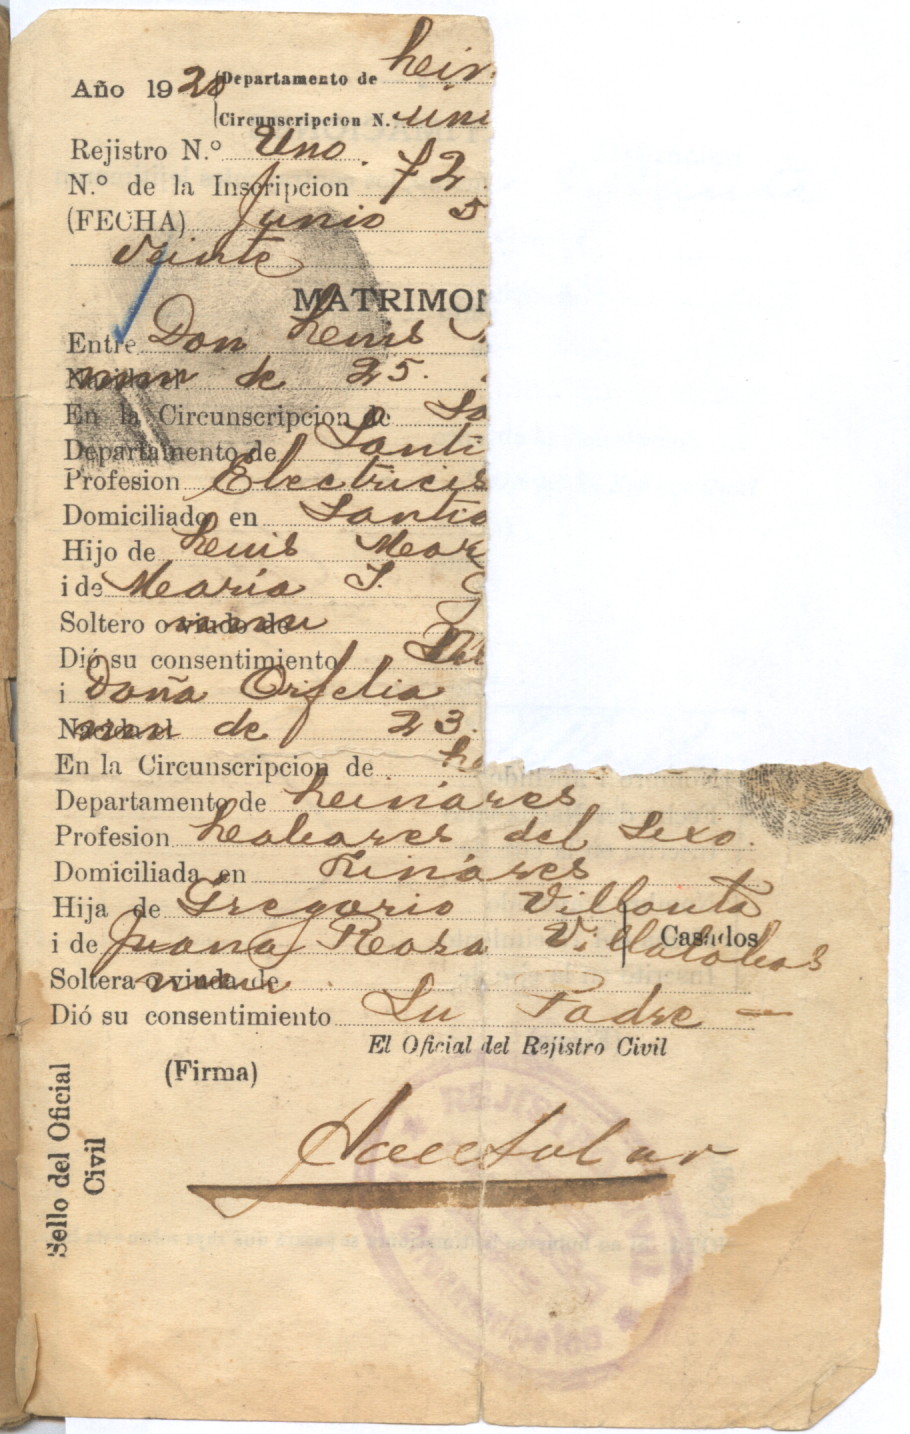 Año 1920
Departamento de Lin
Circunscripcion N. un
Rejistro N.º Uno.
N.º de la Inscripcion 72
(FECHA) Junio 5
veinte
MATRIMON
Entre Don Luis
Nacido el de 25.
En la Circunscripcion de Sa
Departamento de Santi
Profesion Electricis
Domiciliado en Santia
Hijo de Luis Mar
i de Maria S.
Soltero o viudo de
Dió su consentimiento
i Doña Orfelia
Nacida el de 23.
En la Circunscripcion de
Departamento de Linares
Profesion Labores del Sexo.
Domiciliada en Linares
Hija de Gregorio Villouta
i de Juana Rosa Villalobos
Casados
Soltera o viuda de
Dió su consentimiento Su Padre —
El Oficial del Rejistro Civil
(Firma)
Sello del Oficial
Civil